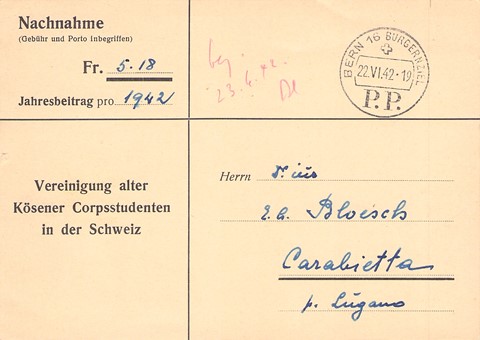 Nachnahme
(Gebühr und Porto inbegriffen)
Fr. 5.18
Jahresbeitrag pro 1942
23.6.42.
BERN 16 BURGERNZIEL
22.VI.42·19
P.P.
Vereinigung alter
Kösener Corpsstudenten
in der Schweiz
Herrn Dr. ius
Bloesch
Carabietta
p. Lugano